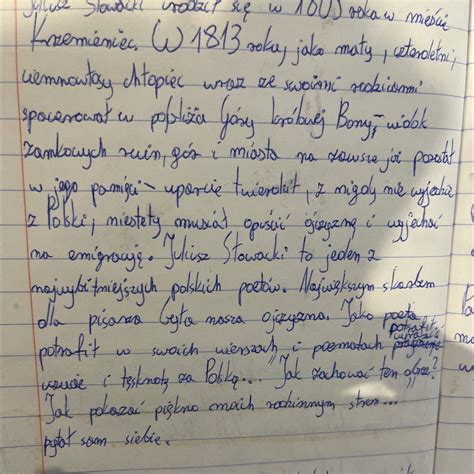 Juliusz Słowacki urodził się w 1809 roku w mieście
Krzemieniec. W 1813 roku, jako mały, czteroletni,
ciemnowłosy chłopiec wraz ze swoimi rodzicami
spacerował w pobliżu Góry królowej Bony, - widok
zamkowych ruin, gór i miasta na zawsze już pozostał
w jego pamięci - uparcie twierdził, z nigdy nie wyjedzie
z Polski, niestety musiał opuścić ojczyznę i wyjechać
na emigrację. Juliusz Słowacki to jeden z
najwybitniejszych polskich poetów. Największym skarbem
dla pisarza była nasza ojczyzna. Jako poeta
potrafił w swoich wierszach i poematach potrafił wyrazić
uczucie i tęsknotę za Polskę... "Jak zachować ten obraz?
Jak pokazać piękno moich rodzinnym stron..."
pytał sam siebie.